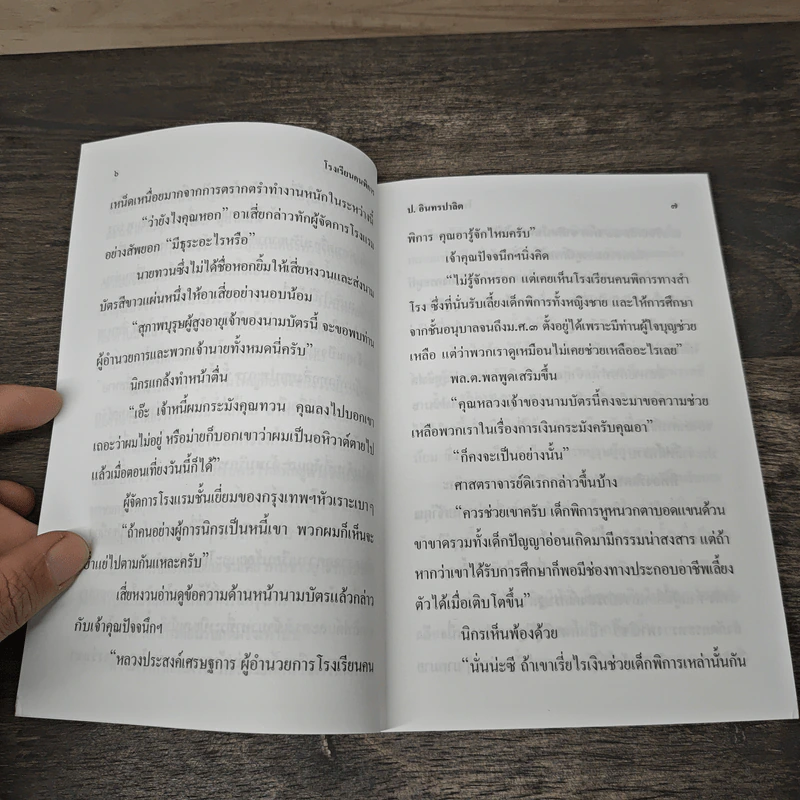 ๖
โรงเรียนคนพิการ
เหน็ดเหนื่อยมากจากการตรากตรำทำงานหนักในระหว่างนี้
“ว่ายังไงคุณหอก” อาเสี่ยกล่าวทักผู้จัดการโรงแรม
อย่างสัพยอก “มีธุระอะไรหรือ”
นายทวนซึ่งไม่ได้ชื่อหอกยิ้มให้เสี่ยหงวนและส่งนาม
บัตรสีขาวแผ่นหนึ่งให้อาเสี่ยอย่างนอบน้อม
“สุภาพบุรุษผู้สูงอายุเจ้าของนามบัตรนี้ จะขอพบท่าน
ผู้อำนวยการและพวกเจ้านายทั้งหมดนี่ครับ”
นิกรแกล้งทำหน้าตื่น
“เอ๊ะ เจ้าหนี้ผมกระมังคุณทวน คุณลงไปบอกเขา
เถอะว่าผมไม่อยู่ หรือม่ายก็บอกเขาว่าผมเป็นอหิวาต์ตายไป
แล้วเมื่อตอนเที่ยงวันนี้ก็ได้”
ผู้จัดการโรงแรมชั้นเยี่ยมของกรุงเทพฯหัวเราะเบาๆ
“ถ้าคนอย่างผู้การนิกรเป็นหนี้เขา พวกผมก็เห็นจะ
แย่ไปตามกันแหละครับ”
เสี่ยหงวนอ่านดูข้อความด้านหน้านามบัตรแล้วกล่าว
กับเจ้าคุณปัจจนึกฯ
“หลวงประสงค์เศรษฐการ ผู้อำนวยการโรงเรียนคน
ป. อินทรปาลิต
๗
พิการ คุณอารู้จักไหมครับ”
เจ้าคุณปัจจนึกฯนิ่งคิด
“ไม่รู้จักหรอก แต่เคยเห็นโรงเรียนคนพิการทางสำ
โรง ซึ่งที่นั่นรับเลี้ยงเด็กพิการทั้งหญิงชาย และให้การศึกษา
จากชั้นอนุบาลจนถึงม.ศ.๓ ตั้งอยู่ได้เพราะมีท่านผู้ใจบุญช่วย
เหลือ แต่ว่าพวกเราดูเหมือนไม่เคยช่วยเหลืออะไรเลย”
พล.ต.พลพูดเสริมขึ้น
“คุณหลวงเจ้าของนามบัตรนี้คงจะมาขอความช่วย
เหลือพวกเราในเรื่องการเงินกระมังครับคุณอา”
“ก็คงจะเป็นอย่างนั้น”
ศาสตราจารย์ดิเรกกล่าวขึ้นบ้าง
“ควรช่วยเขาครับ เด็กพิการหูหนวกตาบอดแขนด้วน
ขาขาดรวมทั้งเด็กปัญญาอ่อนเกิดมามีกรรมน่าสงสาร แต่ถ้า
หากว่าเขาได้รับการศึกษาก็พอมีช่องทางประกอบอาชีพเลี้ยง
ตัวได้เมื่อเติบโตขึ้น”
นิกรเห็นพ้องด้วย
“นั่นน่ะซี ถ้าเขาเรี่ยไรเงินช่วยเด็กพิการเหล่านั้นกัน